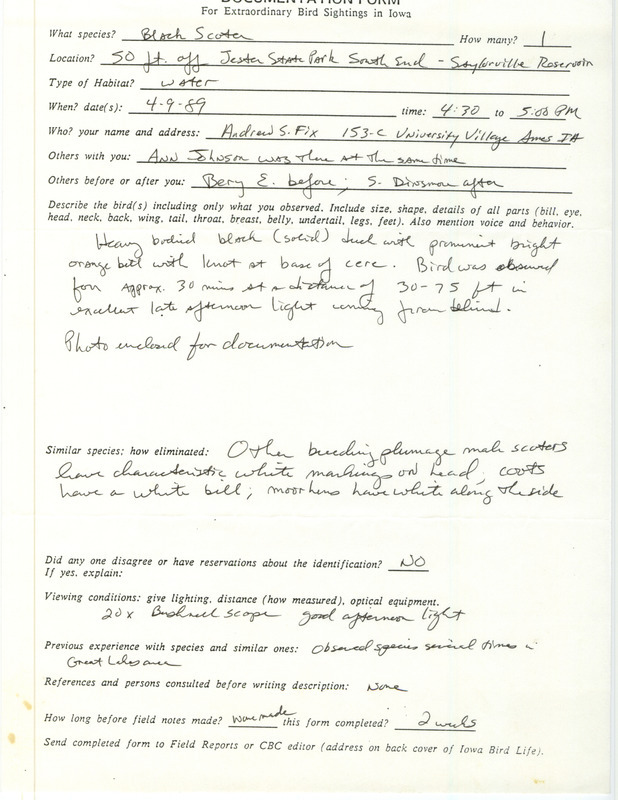 DOCUMENTATION FORM
For Extraordinary Bird Sightings in Iowa
What species? Black Scoter How many? 1
Location? 50 ft. off Jester State Park South End - Saylorville Reservoir
Type of Habitat? water
When? date(s): 4-9-89 time: 4:30 to 5:00 PM
Who? your name and address: Andrew S. Fix 153-C University Village Ames IA
Others with you: Ann Johnson was there at the same time
Others before or after you: Bery E. before; S. Dinsmore after
Describe the bird(s) including only what you observed. Include size, shape, details of all parts (bill, eye,
head, neck, back, wing, tail, throat, breast, belly, undertail, legs, feet). Also mention voice and behavior.
Heavy bodied black (solid) duck with prominent bright
orange bill with knot at base of cere. Bird was observed
for approx. 30 mins at a distance of 30-75 ft in
excellent late afternoon light coming from behind.
Photo enclosed for documentation
Similar species: how eliminated: Other breeding plumage male scoters
have characteristic white markings on head; coots
have a white bill; moorhens have white along the side
Did any one disagree or have reservations about the identification? NO
If yes, explain:
Viewing conditions: give lighting, distance (how measured), optical equipment.
20x Bushnell scope good afternoon light
Previous experience with species and similar ones: Observed species several times in
Great Lakes area
References and persons consulted before writing description: None
How long before field notes made? none made this form completed? 2 weeks
Send completed form to Field Reports or CBC editor (address on back cover of Iowa Bird Life).